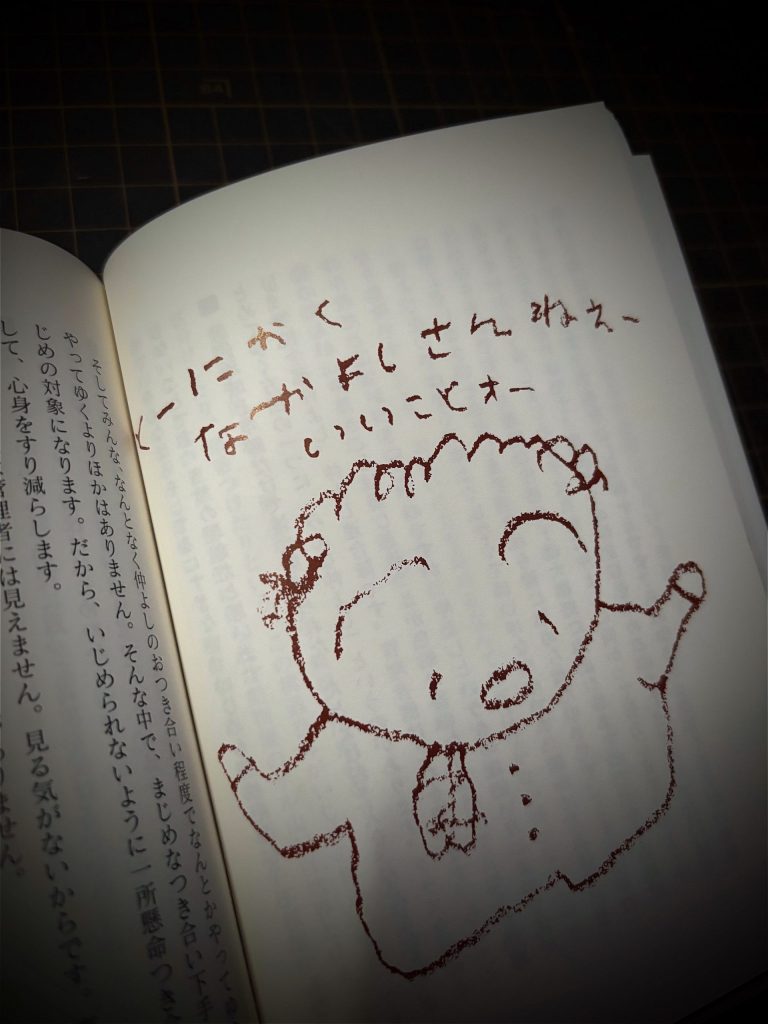 とーにかく
なーかよしさんねぇー
いいことオー
そしてみんな、なんとなく仲よしのおつき合い程度でなんとかやってゆ
やってゆくよりほかはありません。そんな中で、まじめなつき合い下手
じめの対象になります。だから、いじめられないように一所懸命つき
して、心身をすり減らします。
管理者には見えません。見る気がないからです。
ありません。